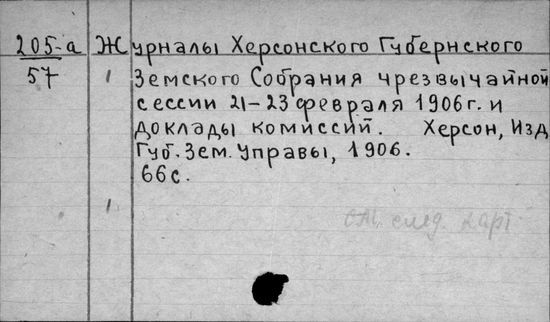 205-а Журналы Херсонского Губернского
57 Земского Собрания чрезвычайной
сессии 21-23 февраля 1906г. и
доклады комиссий. Херсон, Изд
Губ. Зем. Управы, 1906.
66с.
см. след. карт